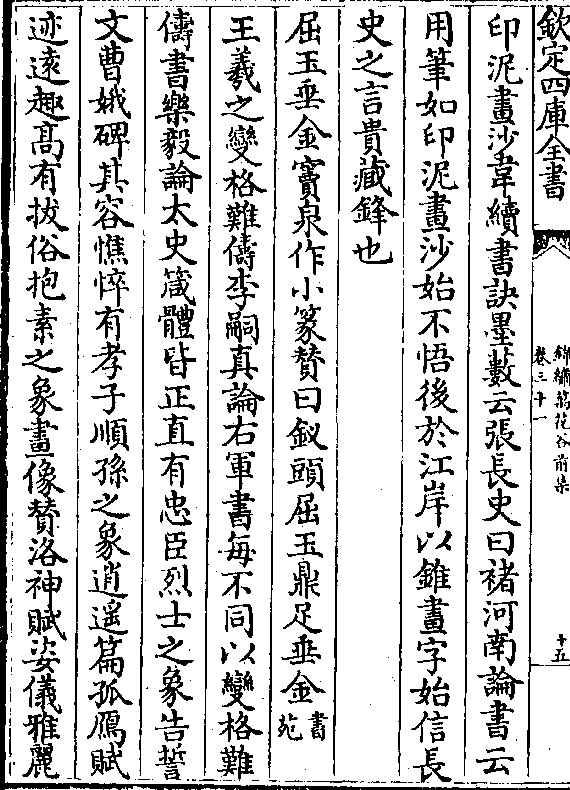 欽定四庫全書
錦繡萬花谷前集
卷三十一
十五
印泥畫沙韋續書訣墨藪云張長史曰褚河南論書云
用筆如印泥畫沙始不悟後於江岸以錐畫字始信長
史之言貴藏鋒也
屈玉垂金竇泉作小篆贊曰釵頭屈玉鼎足垂金書苑
王羲之變格難儔李嗣真論右軍書每不同以變格難
儔書樂毅論太史箴體皆正直有忠臣烈士之象告誓
文曹娥碑其容憔悴有孝子順孫之象逍遥篇孤鴈賦
迹逺趣髙有拔俗抱素之象畫像賛洛神賦姿儀雅麗